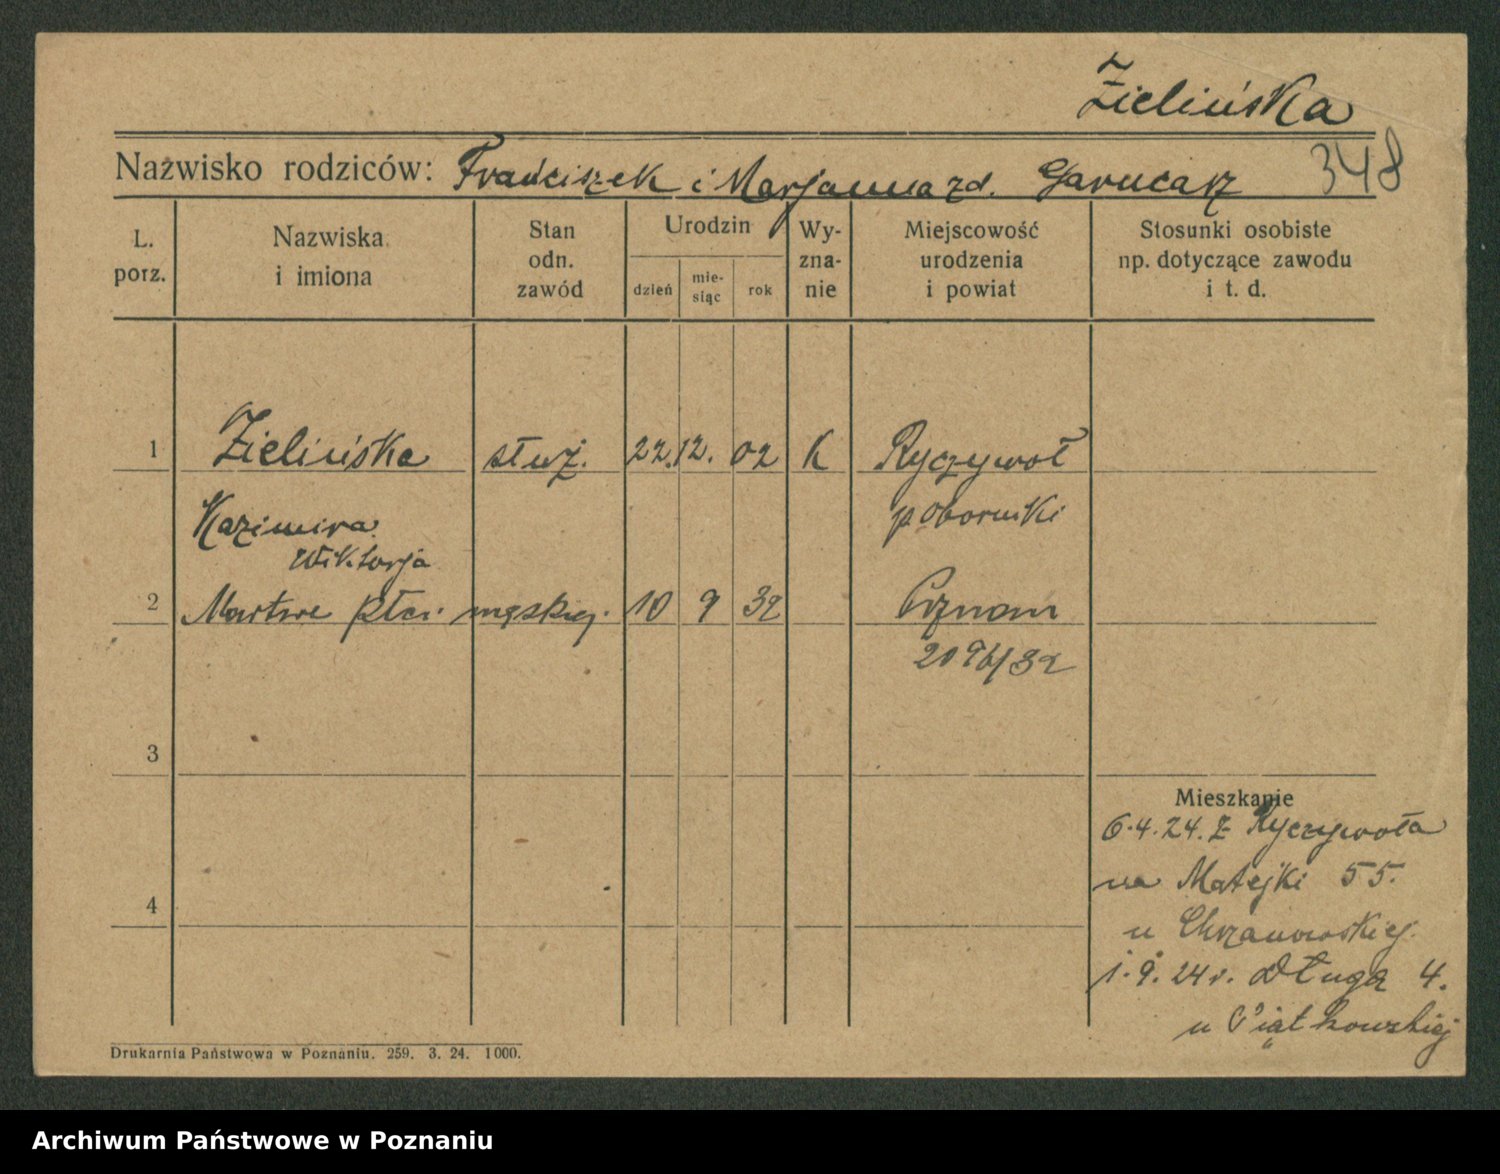 Zielińska
Nazwisko rodziców: Franciszek i Marjanna zd. Garucarz 348
L. porz.
Nazwiska i imiona
Stan odn. zawód
Urodzin
dzień
mie-siąc
rok
Wy-zna-nie
Miejscowość urodzenia i powiat
Stosunki osobiste np. dotyczące zawodu i t. d.
1 Zielińska służ. 22. 12. 02 K Ryczywoł
Kazimira p oborniki
Wiktorja
2 Martwe płci męskiej. 10 9 32 Poznań
2096/32
3
Mieszkanie
6.4.24. z Ryczywoła
na Matejki 55.
4
u Chrzanowskiej.
1.9.24 r. Długa 4.
u Piątkowskiej
Drukarnia Państwowa w Poznaniu. 259. 3. 24. 1000.
Archiwum Państwowe w Poznaniu